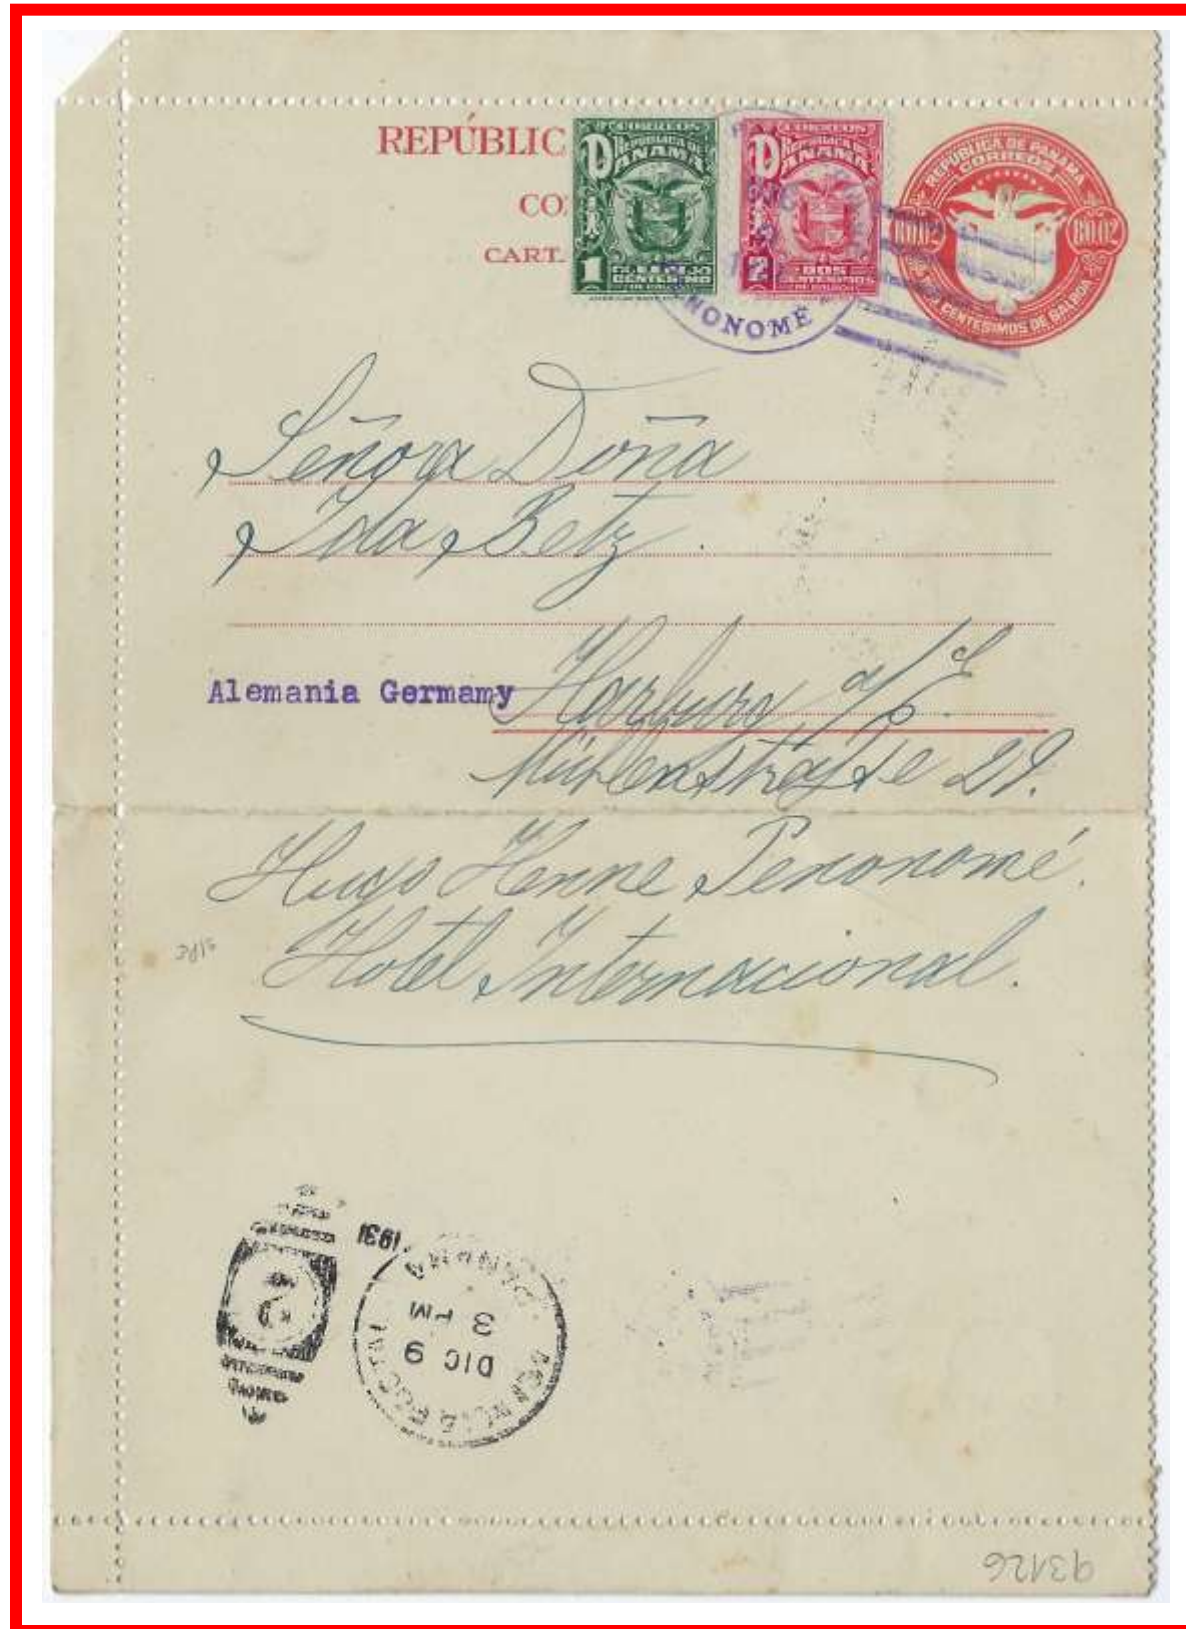 REPÚBLIC
CO
CART
CORREOS
REPUBLICA DE
PANAMA
1
UN CENTESIMO
DE BALBOA
CORREOS
REPUBLICA DE
PANAMA
2
DOS
CENTESIMOS
DE BALBOA
REPUBLICA DE PANAMA
CORREOS
B0.02 B0.02
CENTESIMOS DE BALBOA
PENONOMÉ
Señora Doña
Ida Betz.
Alemania Germamy Harburg a/E.
Mühlenstraße 29.
Hugo Henne Penonomé.
Hotel Internacional.
1931
PANAMA
3 PM
DIC 9
93126